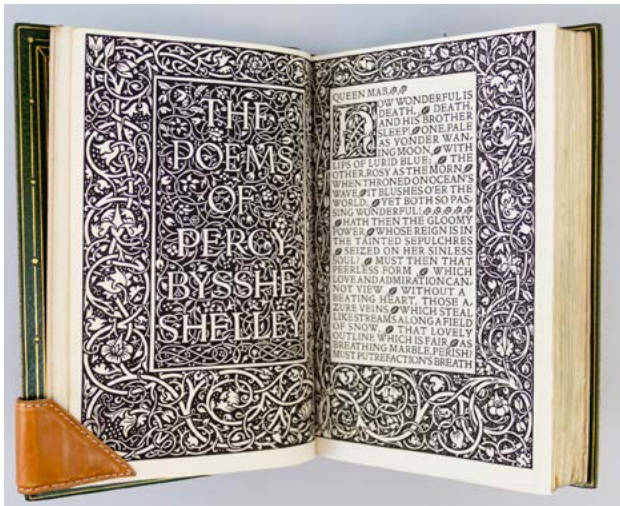 THE
POEMS
OF
PERCY
BYSSHE
SHELLEY
QUEEN MAB.
HOW WONDERFUL IS
DEATH, DEATH,
AND HIS BROTHER
SLEEP! ONE, PALE
AS YONDER WAN-
ING MOON, WITH
LIPS OF LURID BLUE; THE
OTHER, ROSY AS THE MORN
WHEN THRONED ON OCEAN'S
WAVE, IT BLUSHES O'ER THE
WORLD: YET BOTH SO PAS-
SING WONDERFUL!
HATH THEN THE GLOOMY
POWER WHOSE REIGN IS IN
THE TAINTED SEPULCHRES
SEIZED ON HER SINLESS
SOUL? MUST THEN THAT
PEERLESS FORM WHICH
LOVE AND ADMIRATION CAN-
NOT VIEW WITHOUT A
BEATING HEART, THOSE A-
ZURE VEINS WHICH STEAL
LIKE STREAMS ALONG A FIELD
OF SNOW, THAT LOVELY
OUTLINE WHICH IS FAIR AS
BREATHING MARBLE, PERISH?
MUST PUTREFACTION'S BREATH